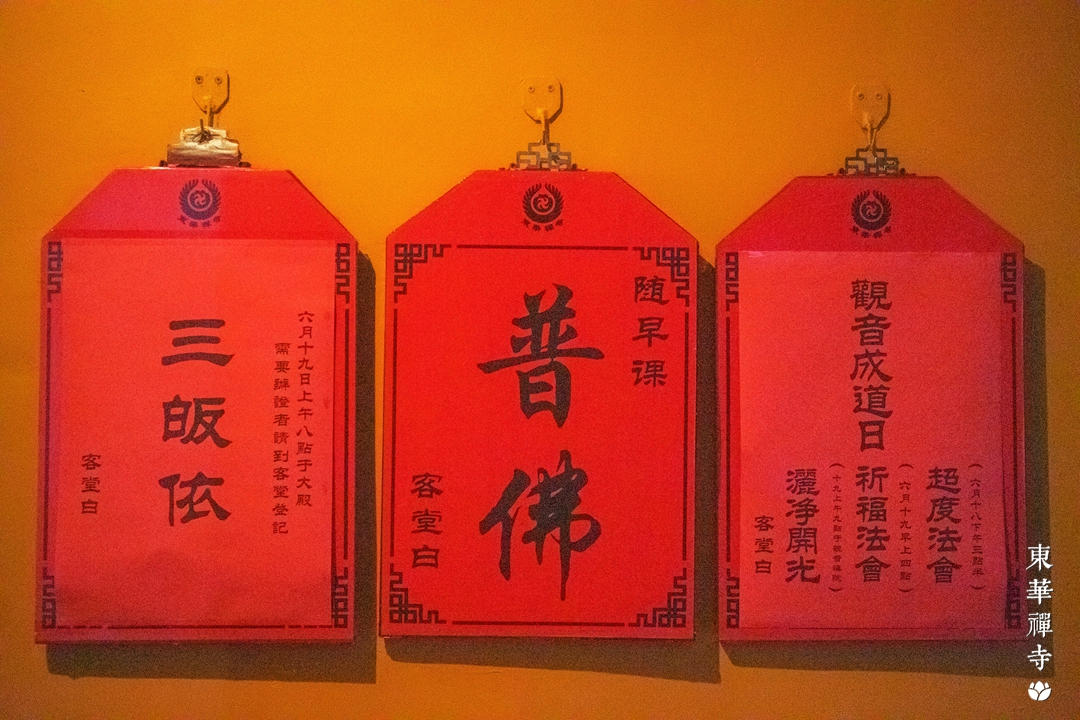 東華禪寺
六月十九日上午八點于大殿
需要辦證者請到客堂登記
三皈依
客堂白
東華禪寺
随早课
普佛
客堂白
東華禪寺
觀音成道日
(六月十八下午三點半)
超度法會
(六月十九早上四點)
祈福法會
(十九上午九點于觀音禪院)
灑淨開光
客堂白
東華禪寺